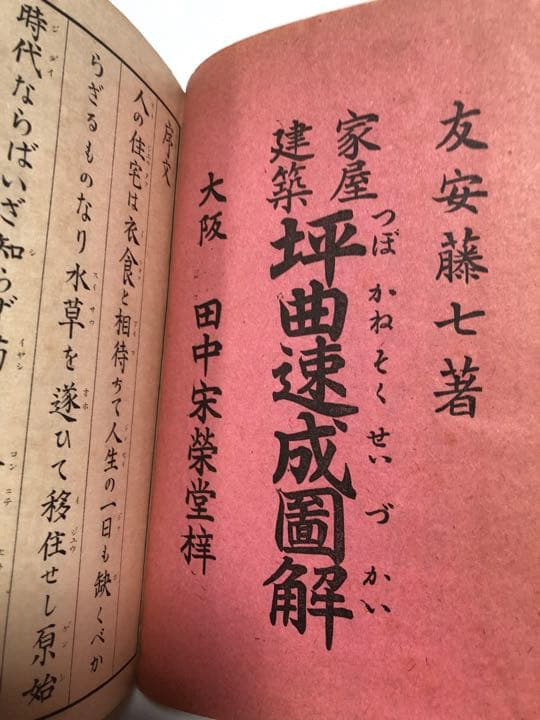 友安藤七著
家屋
建築
坪曲速成圖解
つぼかねそくせいづかい
大阪 田中宋榮堂梓
序文
人の住宅は衣食と相待ちて人生の一日も缺くべか
らざるものなり水草を遂ひて移住せし原始
時代ならばいざ知らず